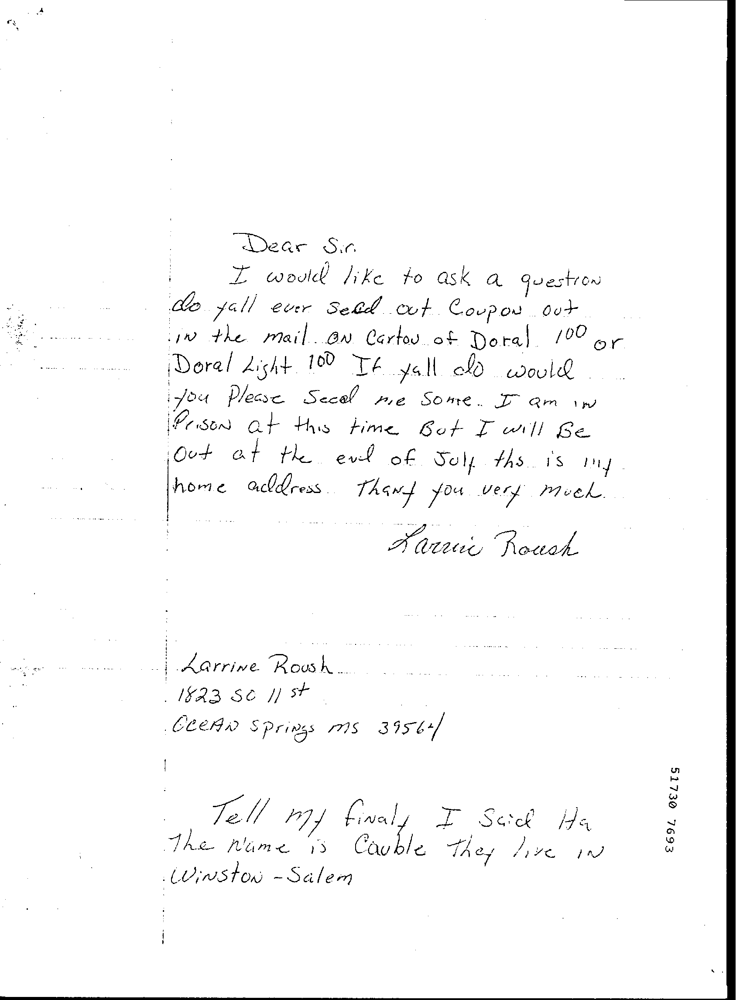 Dear Sir.
I would like to ask a question
do yall ever send out Coupon out
in the mail on Carton of Doral 100 or
Doral Light 100 If yall do would
you Please Send me some. I am in
Prison at this time But I will Be
Out at the end of July ths is my
home address. Thank you very much.
Larrie Roush
Larrine Roush
1823 SO 11 st
OCEAN Springs MS 39564
Tell my finaly I Said Ha
The name is Cauble They live in
Winston-Salem
51730 7693